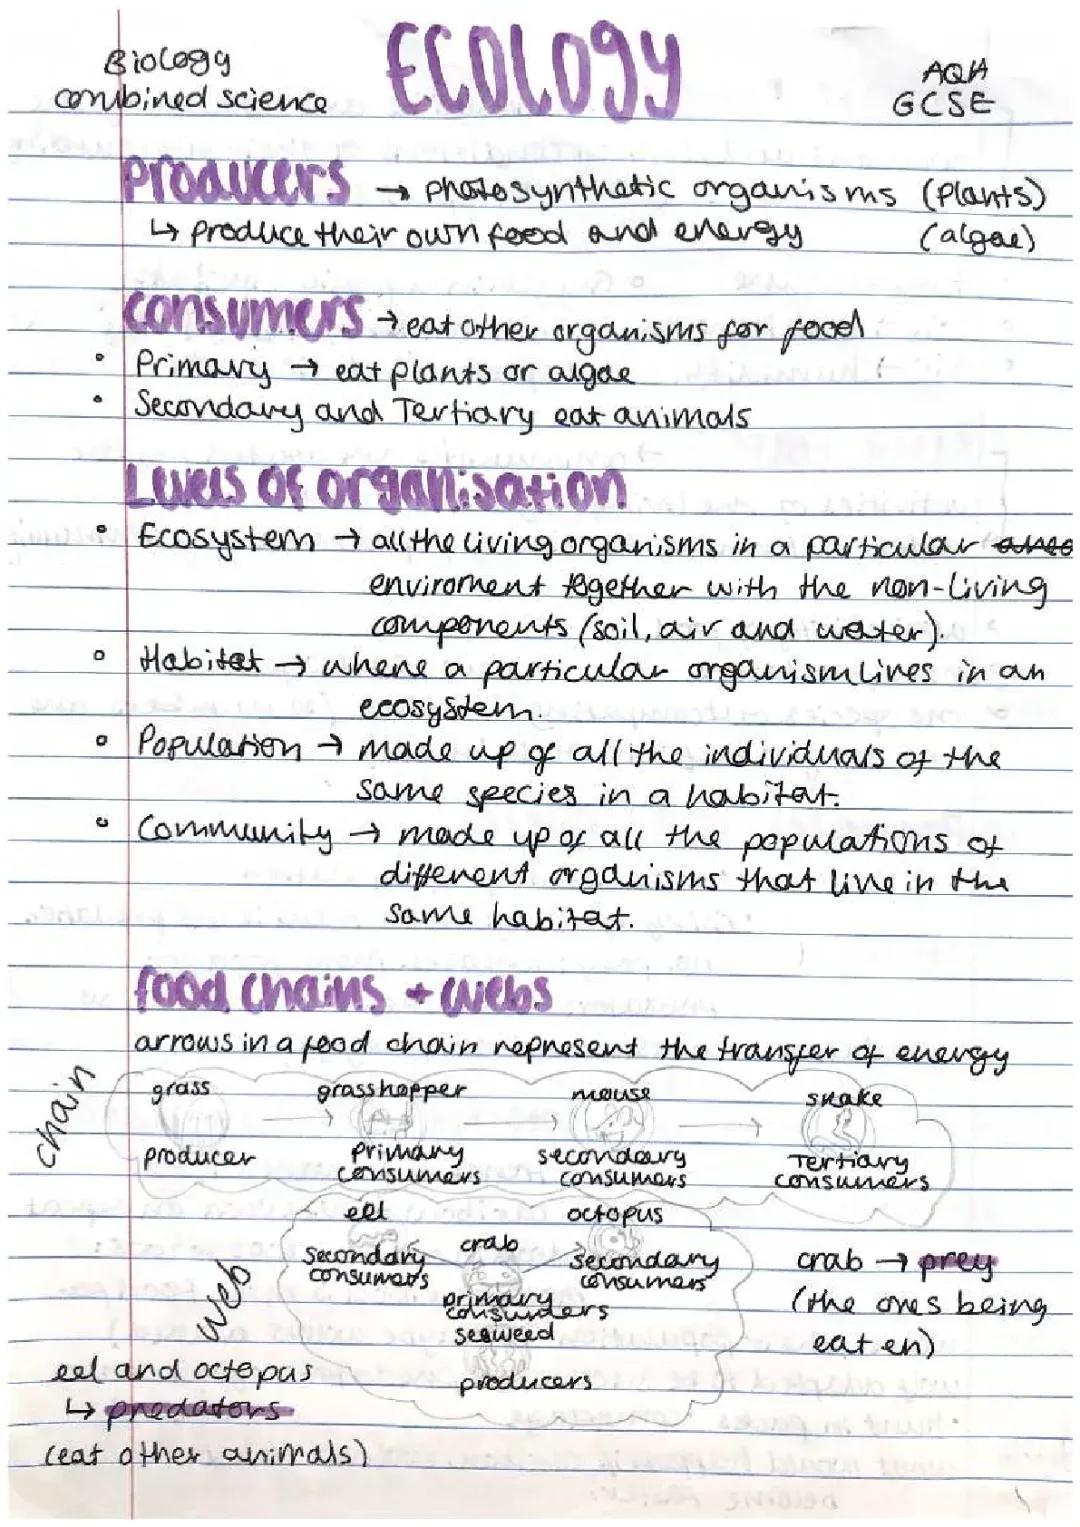 Biology
combined science
ECOLOGY
AQA
GCSE
producers → photosynthetic organisms (Plants)
↳ produce their own food and energy (algae)
consumers → eat other organisms for food
• Primary → eat plants or algae
• Secondary and Tertiary eat animals
Levels of organisation
• Ecosystem → all the living organisms in a particular area
enviroment together with the non-living
components (soil, air and water).
• Habitat → where a particular organism lives in an
ecosystem.
• Population → made up of all the individuals of the
same species in a habitat.
• Community → made up of all the populations of
different organisms that live in the
same habitat.
food chains + webs
arrows in a food chain represent the transfer of energy
chain
grass → grasshopper → mouse → snake
producer primary secondary Tertiary
consumers consumers consumers
web
eel octopus
crab
Secondary secondary
consumers consumers
primary
consumers
seaweed
producers
crab → prey
(the ones being
eaten)
eel and octopus
↳ predators
(eat other animals)